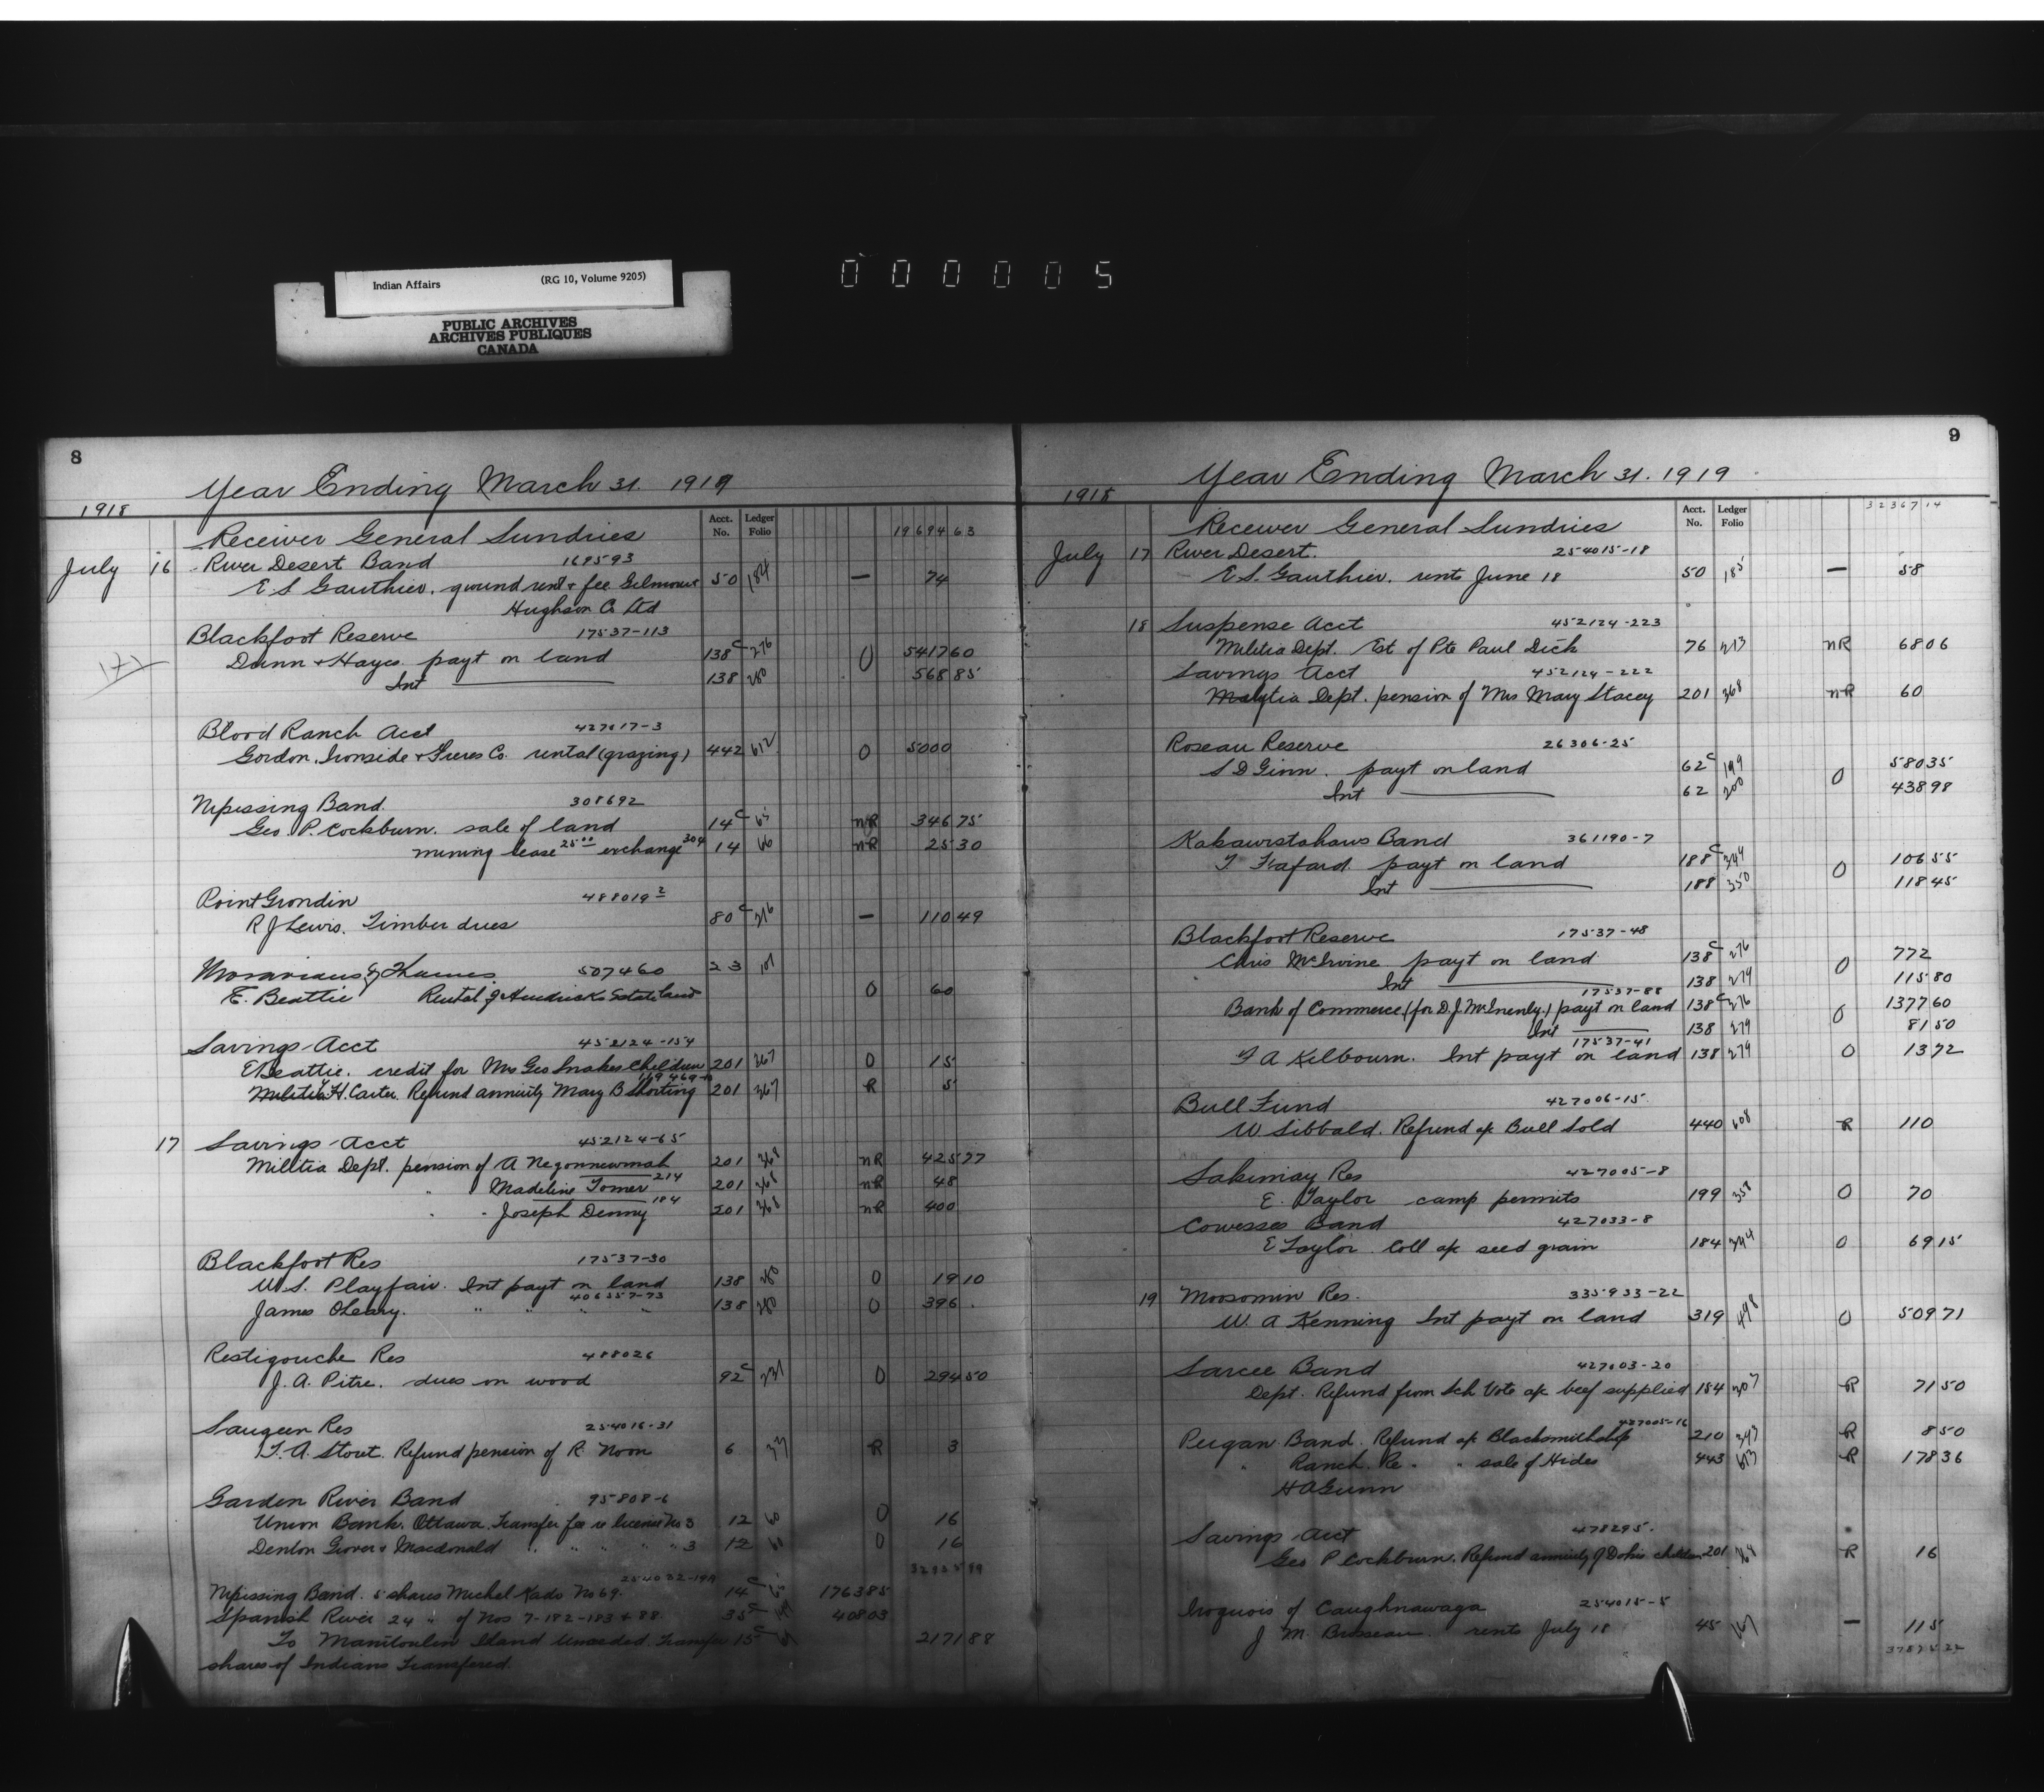 Indian Affairs (RG 10, Volume 9205)
PUBLIC ARCHIVES
ARCHIVES PUBLIQUES
CANADA
000005
8
Year Ending March 31. 1919
1918
Acct. No. Ledger Folio 19694 63
Receiver General Sundries
July 16 River Desert Band 169593
E S Gauthier. ground rent & fee Gilmour 50 184 — 74
Hughson Co Ltd
Blackfoot Reserve 17537-113
Dunn & Hayes payt on land 138c 276 O 5417 60
Int 138 280 568 85
Blood Ranch Acct 427017-3
Gordon, Ironside & Feres Co. rental (grazing) 442 612 O 5000
Nipissing Band. 308692
Geo. P. Cockburn. sale of land 14c 65 NR 346 75
mining lease 25.00 exchange 30¢ 14 66 NR 25 30
Point Grondin 488019-2
R J Lewis. Timber dues 80c 216 — 110 49
Moravians of Thames 507460 23 101
E. Beattie Rental of Hendricks Estate land O 60
Savings Acct 452124-154
E Beattie. credit for Mrs Geo Snakes children 201 367 O 15
H. Carter. Refund annuity Mary B Shorting 201 367 R 5
17 Savings Acct 452124-65
Militia Dept. pension of A Negonnewmah 201 368 NR 425 77
" Madeline Tomer 214 201 368 NR 48
" Joseph Denny 184 201 368 NR 400
Blackfoot Res 17537-30
W. S. Playfair. Int payt on land 138 280 O 19 10
406557-73
James O'Leary. " " " " 138 280 O 396
Restigouche Res 488026
J. A. Pitre. dues on wood 92c 231 O 294 50
Saugeen Res 254016-31
T. A. Stout. Refund pension of R. Noon 6 33 R 3
Garden River Band 95808-6
Union Bank. Ottawa. Transfer fee re license No 3 12 60 O 16
Denton Grover & Macdonald " " " " " 3 12 60 O 16
254032-19A
Nipissing Band. 5 shares Michel Kado No 69. 14c 65 1763 85
Spanish River 24 " of Nos 7-182-183 & 88. 35c 408 03
To Manitoulin Island Unceded Transfer 15c 2171 88
shares of Indians Transfered
9
Year Ending March 31. 1919
1918
Acct. No. Ledger Folio 32367 14
Receiver General Sundries
July 17 River Desert. 254015-18
E. S. Gauthier. rents June 18 50 185 — 58
18 Suspense Acct 452124-223
Militia Dept. Est of Pte Paul Dick 76 213 NR 68 06
Savings Acct 452124-222
Militia Dept. pension of Mrs Mary Stacey 201 368 NR 60
Roseau Reserve 26306-25
S D Ginn. payt on land 62c 199 O 580 35
Int 62 200 438 98
Kahkewistahaws Band 361190-7
T Frafard payt on land 188c 349 O 106 55
Int 188 350 118 45
Blackfoot Reserve 17537-48
Chris McIrvine payt on land 138c 276 O 772
Int 138 279 115 80
17537-88
Bank of Commerce (for D. J. McInenly.) payt on land 138c 276 O 1377 60
Int 138 279 81 50
17537-41
F A Kilbourn. Int payt on land 138 279 O 13 72
Bull Fund 427006-15
W. Sibbald. Refund a/c Bull Sold 440 608 R 110
Sakimay Res 427005-8
E. Taylor camp permits 199 358 O 70
Cowesses Band 427033-8
E Taylor Coll a/c seed grain 184 344 O 69 15
19 Moosomin Res. 335933-22
W. A Kenning Int payt on land 319 498 O 509 71
Sarcee Band 427003-20
Dept. Refund from Sch Vote a/c beef supplied 154 307 R 71 50
427005-16
Peigan Band. Refund a/c Blacksmithshop 210 393 R 8 50
" Ranch. Re. " sale of Hides 443 613 R 178 36
H A Gunn
Savings Acct 478295.
Geo P Cockburn. Refund annuity of Dokis children 201 369 R 16
Iroquois of Caughnawaga 254015-5
J. M. Brosseau. rents July 18 45 167 — 115